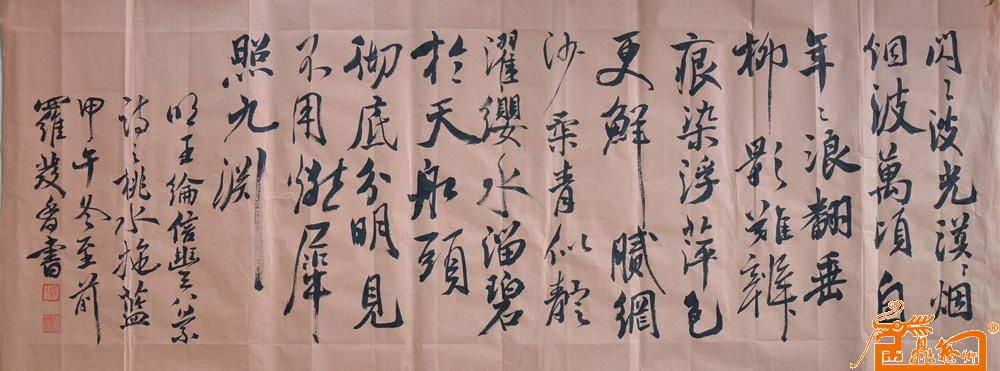 閃〻波光漠〻烟
個波萬頃自
年〻浪翻垂
柳影難辨
痕染浮萍色
更鮮 膩網
沙柔青似靛
濯纓水溜碧
於天船頭
彻底分明見
不用燃犀
照九淵
明王綸信豐之八景
詩之桃水拖藍
甲午冬至前
羅發香書